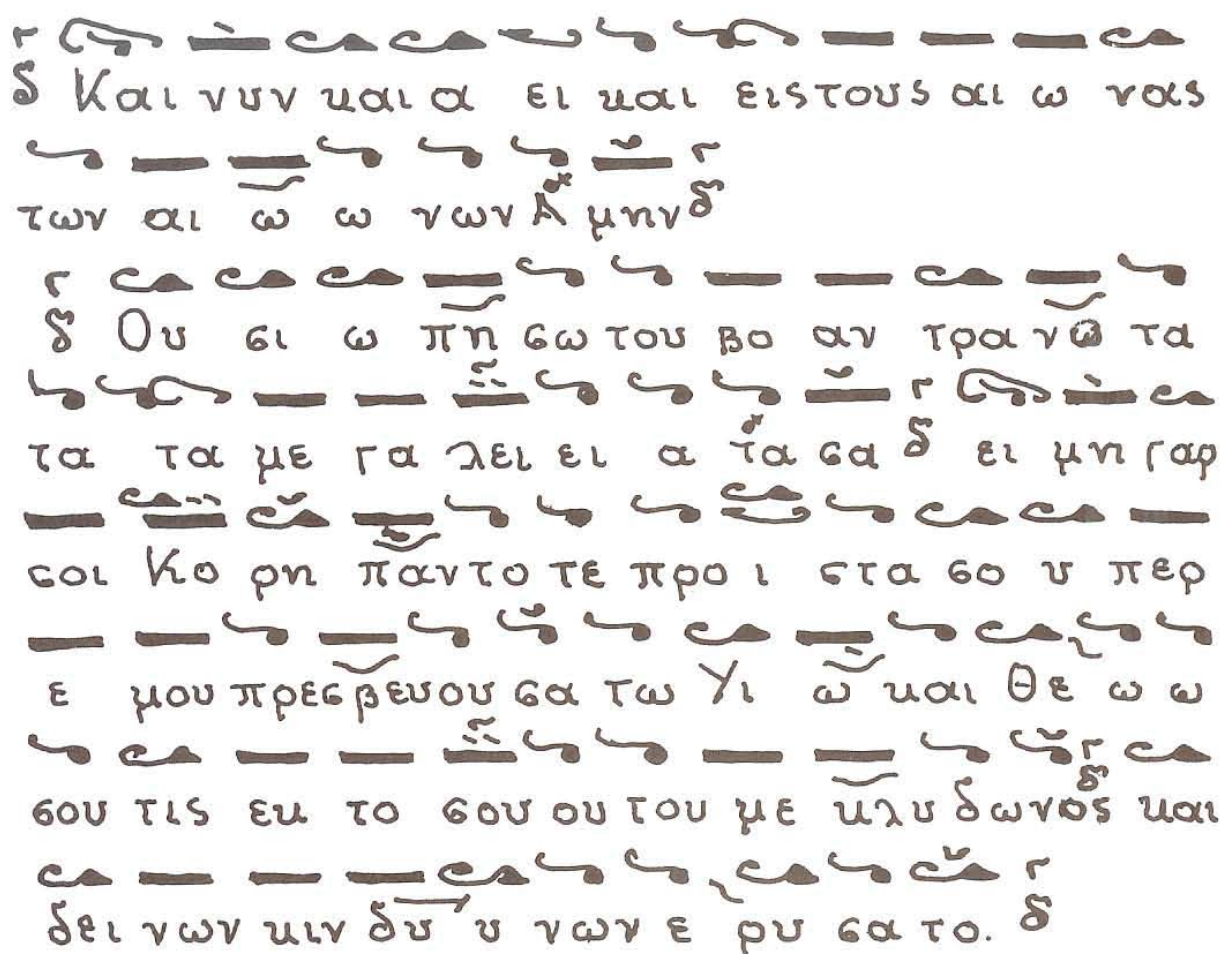 δ Και νυν και α ει και εις τους αι ω νας
των αι ω ω νων Α μην δ
δ Ου σι ω πη σω του βο αν τρα νω τα
τα τα με γα λει ει α τα σα δ ει μη γαρ
σοι Κο ρη παν το τε προ ι στα σο υ περ
ε μου πρεσ βευ ου σα τω Υι ω και Θε ω ω
σου τις εκ το σου ου του με κλυ δω νος δ και
δει νων κιν δυ υ νων ε ρυ σα το. δ